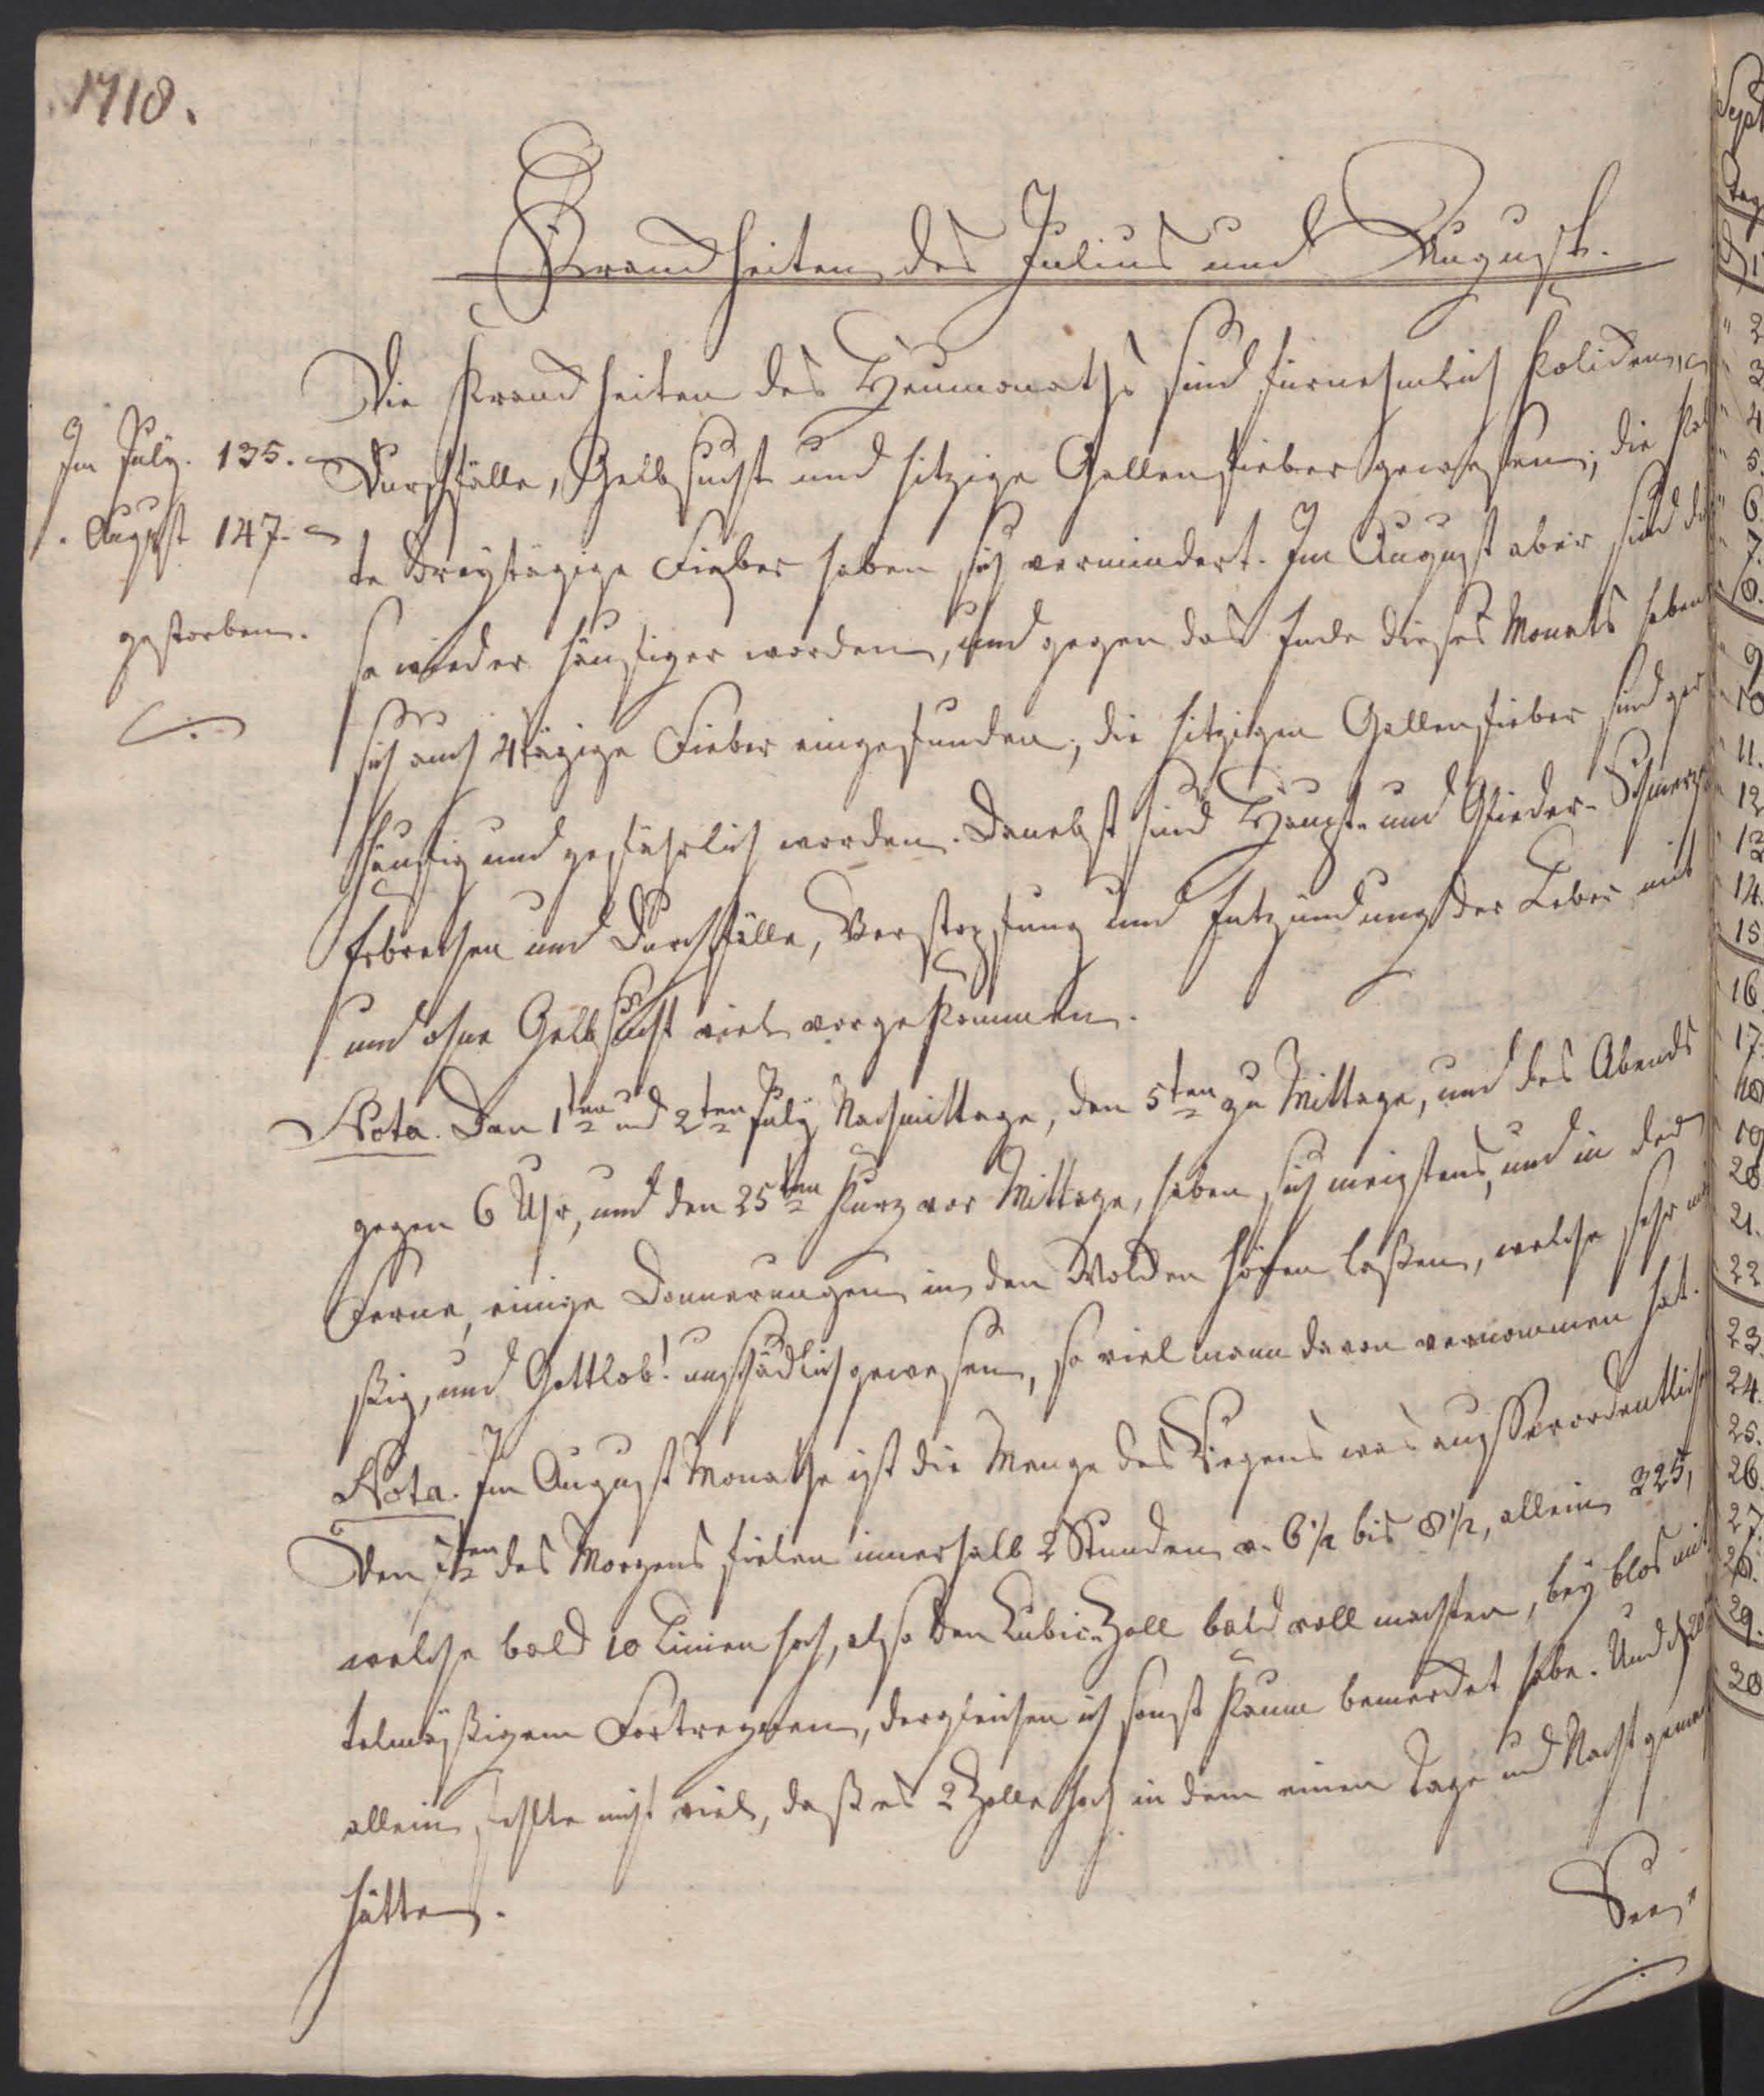 1718.
Kranckheiten des Julius und August.
Die Kranckheiten des Heumonaths sind fürnehmlich Koliken,
Im July. 135.
Durchfälle, Gelbsucht und hitzige Gallenfieber gewesen; die kal
August 147.
te dreytägige Fieber haben sich vermindert. Im August aber sind die
gestorben.
se wieder häufiger worden, und gegen das Ende dieses Monats haben
sich auch 4tägige Fieber eingefunden; die hitzigen Gallenfieber sind gar
häufig und gefährlich worden. Danebst sind Haupt- und Glieder-Schmerz
Erbrechen und Durchfälle, Verstopfung und Entzündung der Leber mit
und ohne Gelbsucht viel vorgekommen.
Nota. Den 1ten und 2ten July Nachmittage, den 5ten zu Mittage, und des Abends
gegen 6 Uhr, und den 25ten kurz vor Mittage, haben sich meistens, und in der
Ferne, einige Donnerungen in den Wolcken hören laßen, welche sehr mä
ßig, und Gottlob! unschädlich gewesen, so viel mann davon vernommen hat.
Nota. Im August Monathe ist die Menge des Regens was ausserordentliches
Den 7ten des Morgens fielen innerhalb 2 Stunden v. 6½ bis 8½, allein 325,
welche bald 10 Linien hoch, also den Cubic-Zoll bald voll machten, bey blos mit
telmäßigem Fortregnen, dergleichen ich sonst kaum bemercket habe. Und
allein, fehlte nicht viel, daß es 2 Zolle hoch in dem einen Tage und Nacht
hätte.